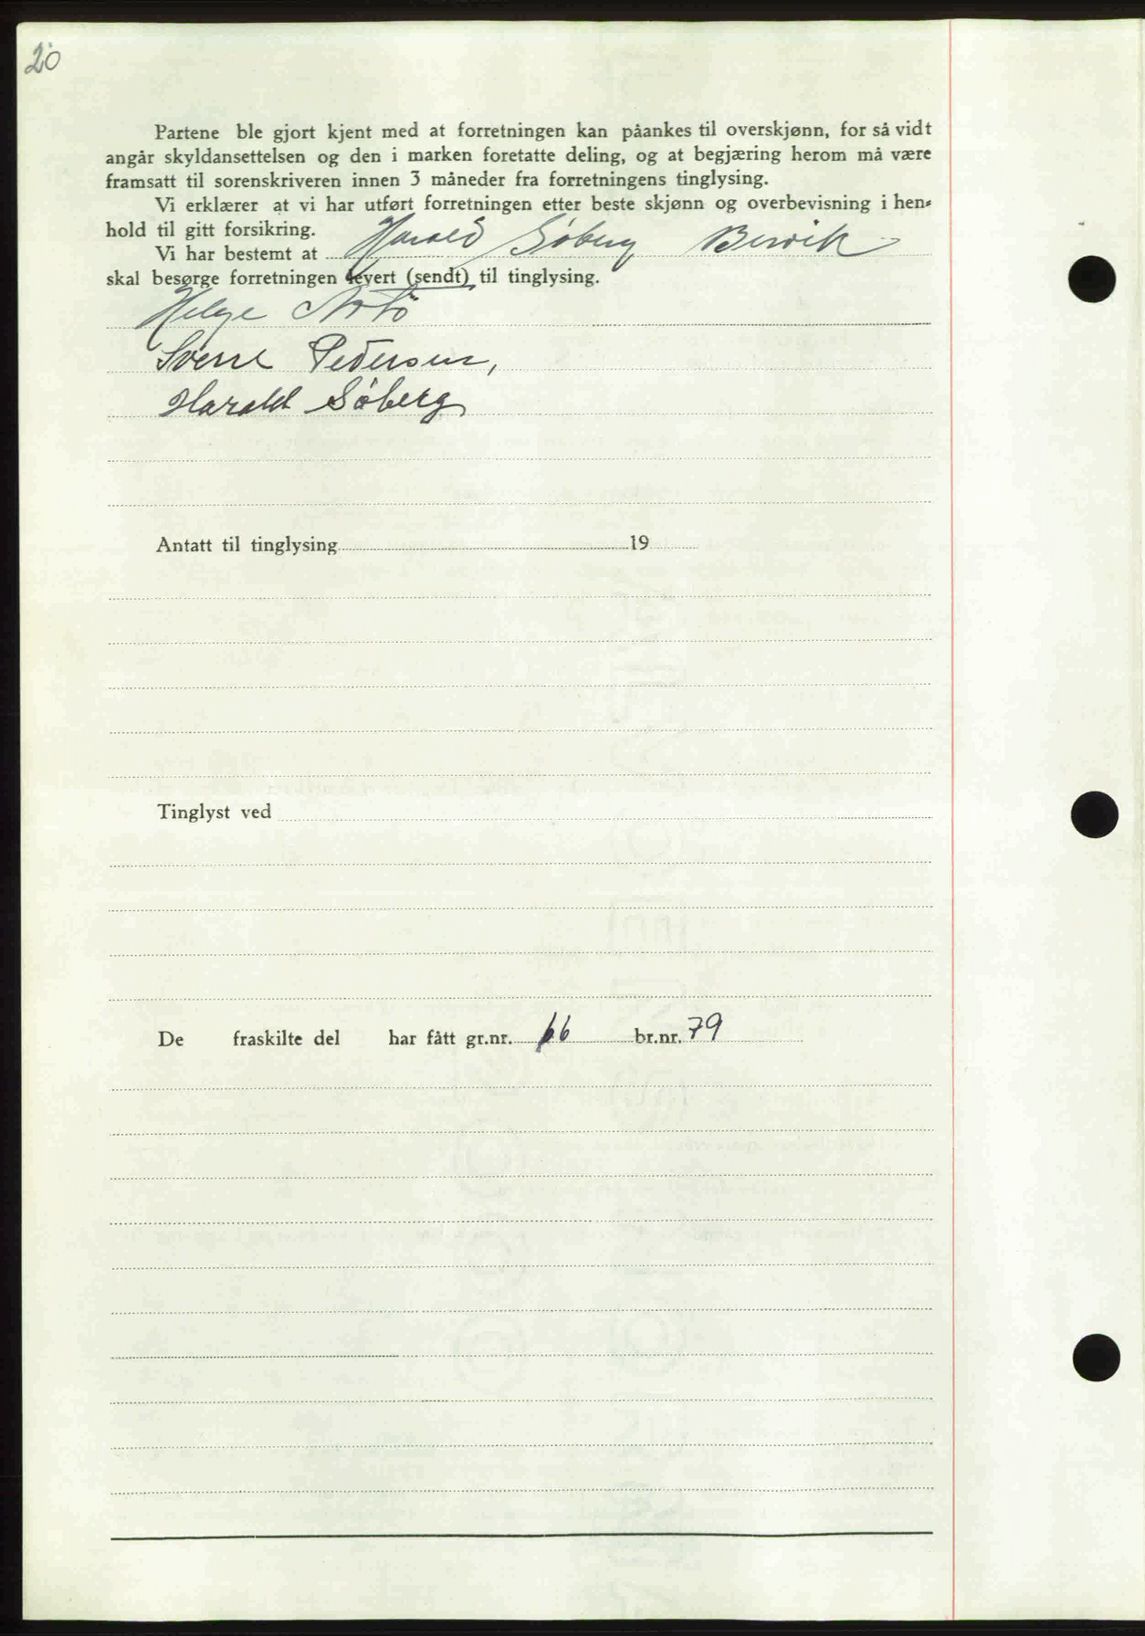 20
Partene ble gjort kjent med at forretningen kan påankes til overskjønn, for så vidt
angår skyldansettelsen og den i marken foretatte deling, og at begjæring herom må være
framsatt til sorenskriveren innen 3 måneder fra forretningens tinglysing.
Vi erklærer at vi har utført forretningen etter beste skjønn og overbevisning i hen-
hold til gitt forsikring.
Vi har bestemt at Harald Søberg Bervik
skal besørge forretningen levert (sendt) til tinglysing.
Helge
Sverre Pedersen,
Harald Søberg
Antatt til tinglysing 19
Tinglyst ved
De fraskilte del har fått gr.nr. 66 br.nr. 79